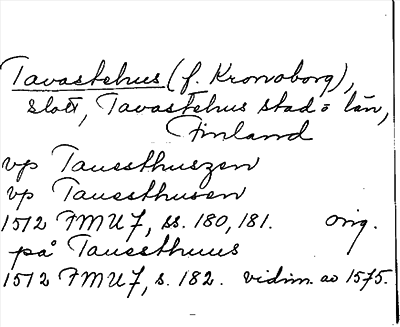 Tavastehus (f. Kronoborg),
slott, Tavastehus stad o län,
Finland
vp Tauesthuszen
vp Tauesthusen
1512 FMU 7, ss. 180, 181. orig.
på Tauesthuus
1512 FMU 7, s. 182. vidim. ao 1575.